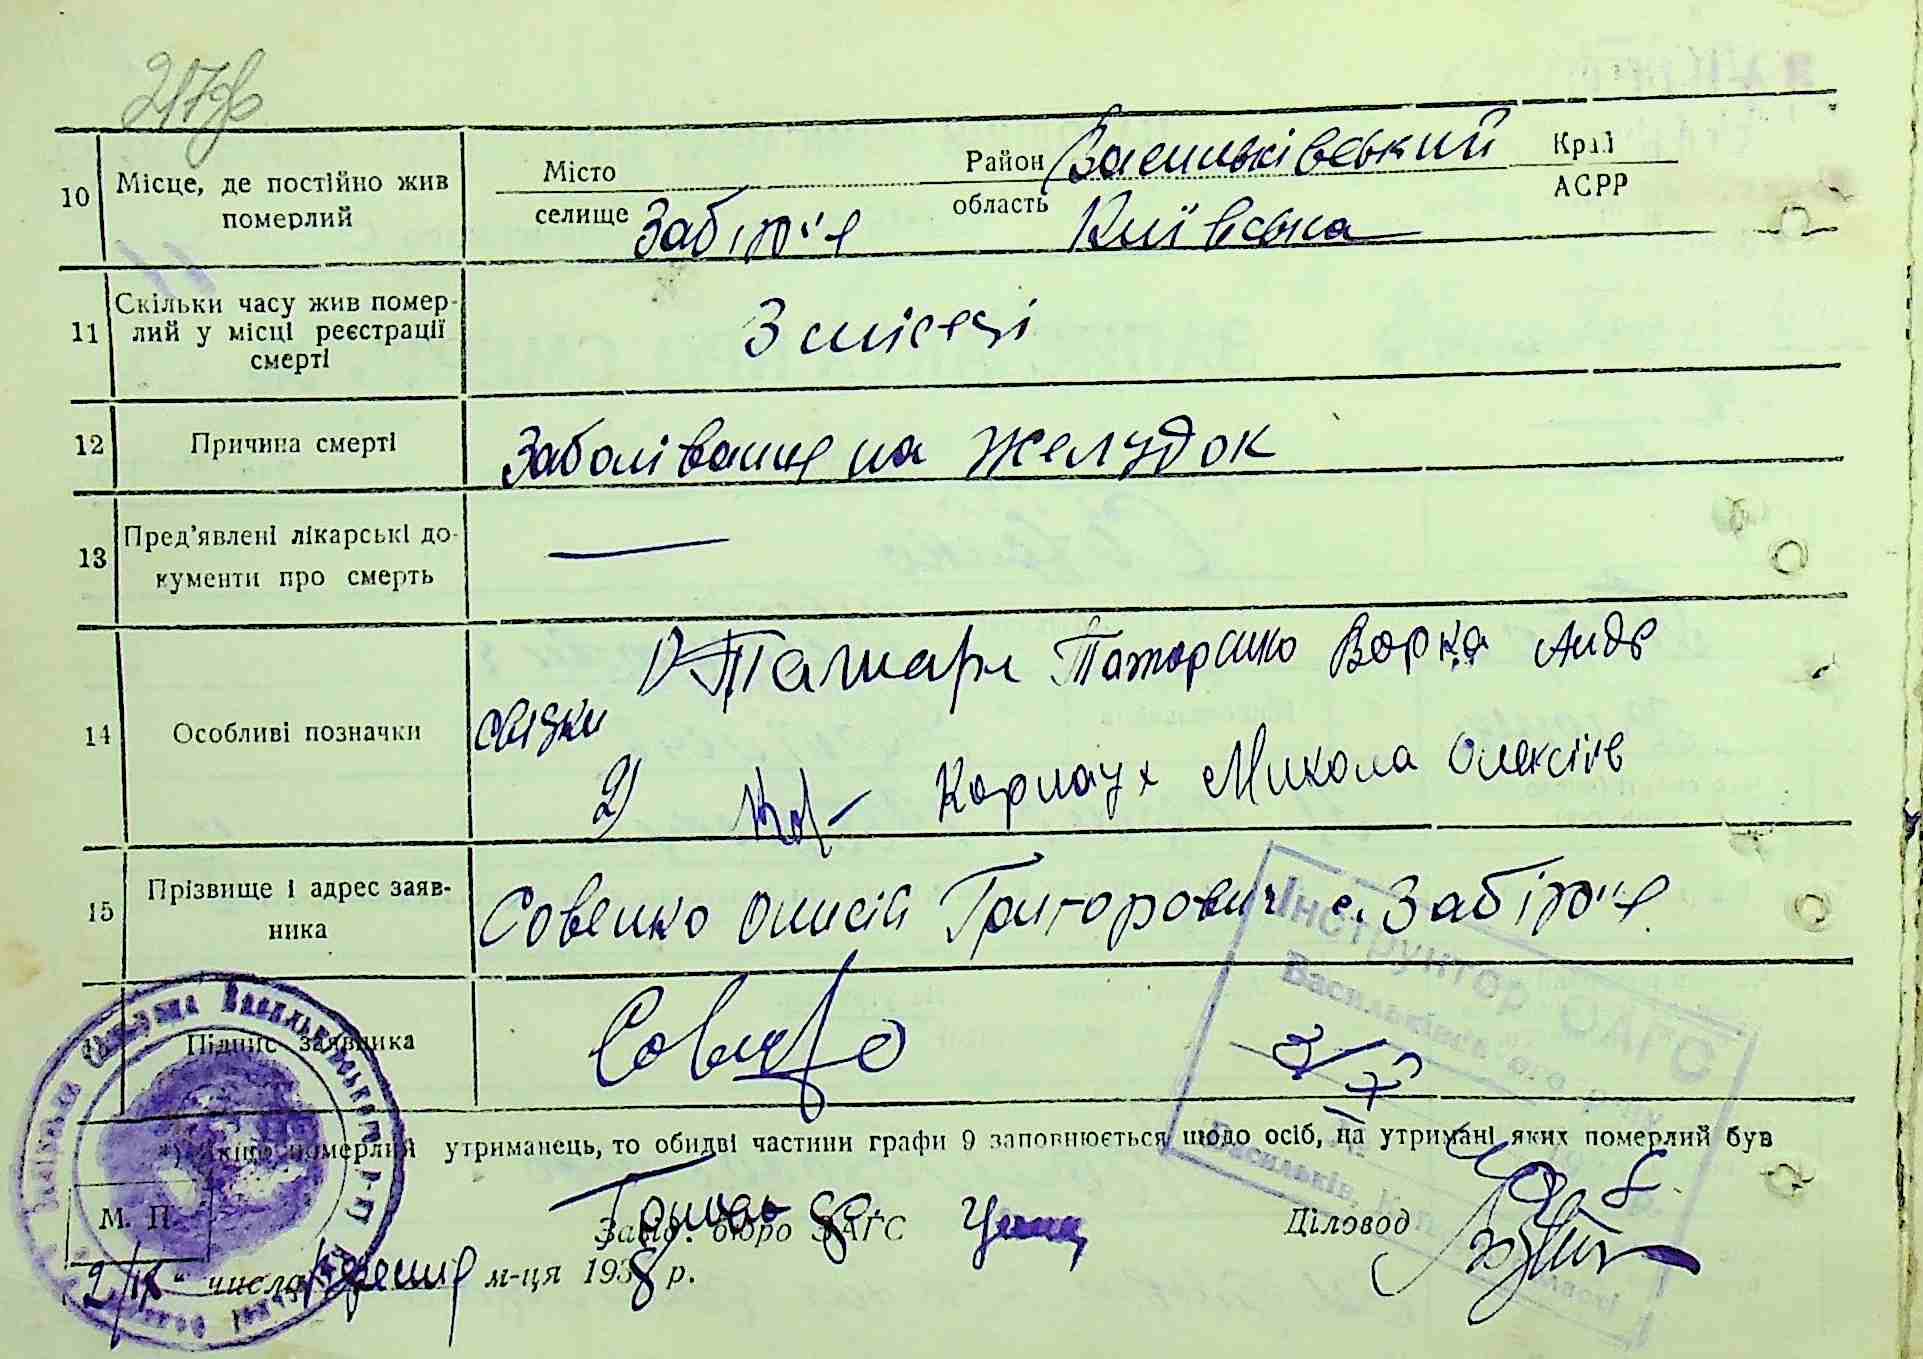 10 Місце, де постійно жив померлий
Місто Район Васильківський Край
селище Забір'я область Київська АСРР
11 Скільки часу жив помер-
лий у місці реєстрації
смерті
3 місяці
12 Причина смерті Заболівання на желудок
13 Пред'явлені лікарські до-
кументи про смерть
—
14 Особливі позначки
свідки
1) Татаренко Варка Андр
2) Карнаух Микола Олексіїв
15 Прізвище і адрес заяв-
ника
Совенко Онисій Григорович с. Забір'я
Підпис заявника
*) Якщо померлий утриманець, то обидві частини графи 9 заповнюється щодо осіб, на утримані яких померлий був
М. П.
Завід. бюро ЗАГС
Діловод
числа м-ця 1938 р.
Інструктор ЗАГС
Васильківського р-ну